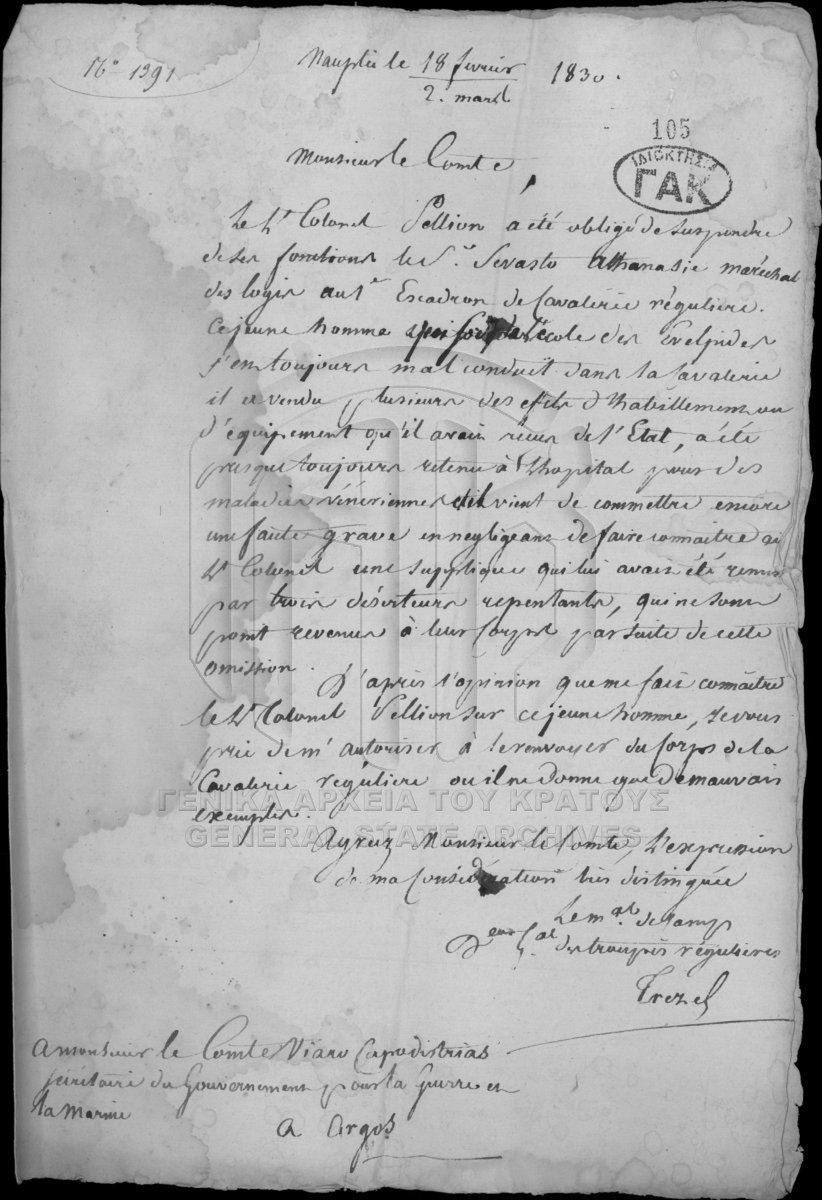 N° 1391
Nauplie le 18 fevrier / 2. mars 1830.
105
ΙΔΙΟΚΤΗΣΙΑ
ΓΑΚ
Monsieur le Comte
Le Lt Colonel Pellion a été obligé de suspendre
de ses fonctions le Sr. Sevasto Athanasie maréchal
des logis au 1er Escadron de Cavalerie régulière.
Ce jeune homme école des Evelpides
s'est toujours mal conduit dans la Cavalerie
il a vendu plusieurs des effets d'habillement ou
d'équipement qu'il avait réçus de l'Etat, a été
presque toujours retenu à l'hopital pour des
maladies vénériennes et il vient de commettre encore
une faute grave en negligeant de faire connaitre au
Lt Colonel une supplique qui lui avait été remise
par trois déserteurs repentants, qui ne sont
point revenus à leur Corps par suite de cette
omission.
D'après l'opinion que me fait connaitre
le Lt Colonel Pellion sur ce jeune homme, je vous
prie de m'autoriser à le renvoyer du Corps de la
Cavalerie régulière ou il ne donne que de mauvais
exemples.
ΓΕΝΙΚΑ ΑΡΧΕΙΑ ΤΟΥ ΚΡΑΤΟΥΣ
GENERAL STATE ARCHIVES
Agréez Monsieur le Comte, l'expression
de ma Considération très distinguée
Le mal. de Camp
Deur Gal des troupes régulières
Trezel
A monsieur le Comte Viaro Capodistrias
secrétaire du Gouvernement pour la Guerre et
la Marine
A Argos